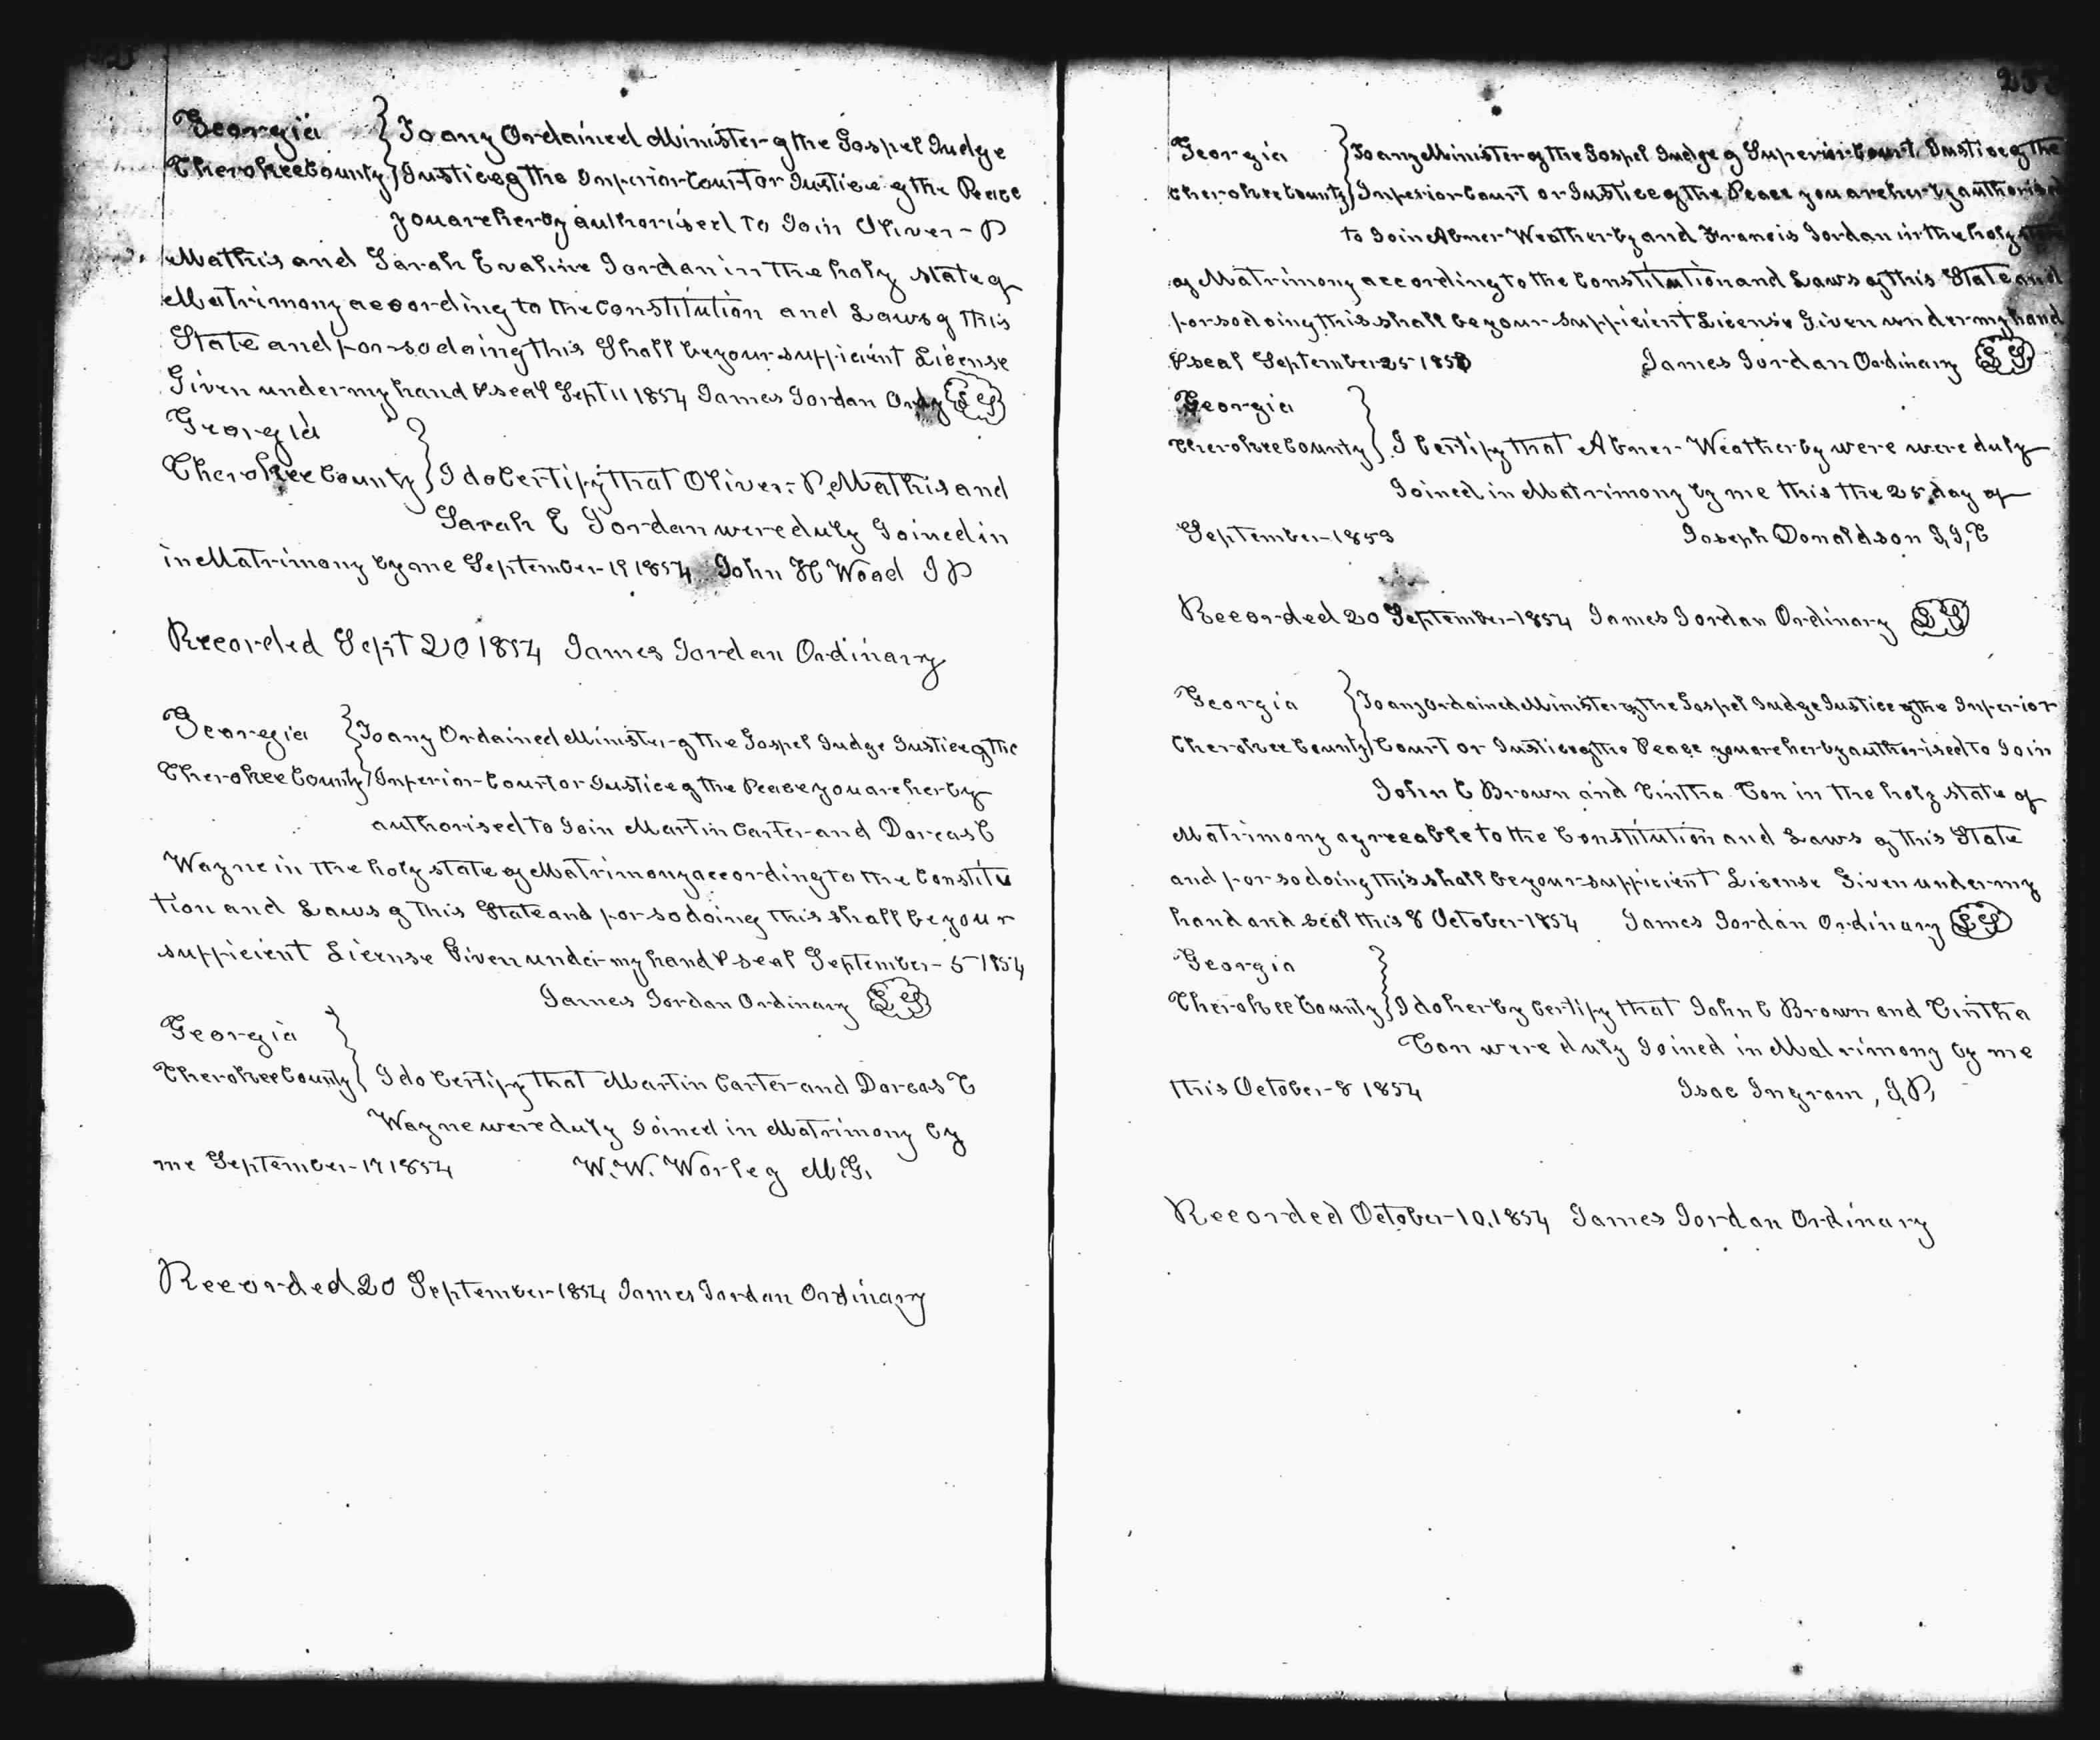 Georgia } To any Ordained Minister of the Gospel Judge
Cherokee County } Justice of the Inferior Court or Justice of the Peace
you are herby authorised to Join Oliver P
Mathis and Sarah Evaline Jordan in the holy state of
Matrimony according to the Constitution and Laws of this
State and for so doing this Shall be your sufficient License
Given under my hand & seal Sept 11 1854 James Jordan Ordy LS
Georgia
Cherokee County } I do Certify that Oliver P. Mathis and
Sarah E Jordan were duly Joined in
in Matrimony by me September 19 1854 John H Wood J P
Recorded Sept 20 1854 James Jordan Ordinary
Georgia } To any Ordained Minister of the Gospel Judge Justice of the
Cherokee County } Inferior Court or Justice of the Peace you are herby
authorised to Join Martin Carter and Dorcas C
Wayne in the holy state of Matrimony according to the Constitu
tion and Laws of this State and for so doing this shall be your
sufficient License Given under my hand & seal September 5 1854
James Jordan Ordinary LS
Georgia
Cherokee County } I do Certify that Martin Carter and Dorcas C
Wayne were duly Joined in Matrimony by
me September 17 1854 W. W. Worley M. G.
Recorded 20 September 1854 James Jordan Ordinary
Georgia } To any Minister of the Gospel Judge of Superior Court, Justice of the
Cherokee County } Inferior Court or Justice of the Peace you are herby authorised
to Join Abner Weatherby and Francis Jordan in the holy
of Matrimony according to the Constitution and Laws of this State and
for so doing this shall be your sufficient License Given under my hand
& seal September 25 1853 James Jordan Ordinary LS
Georgia
Cherokee County } I Certify that Abner Weatherby were were duly
Joined in Matrimony by me this the 25 day of
September 1853 Joseph Donaldson J, I, C
Recorded 20 September 1854 James Jordan Ordinary LS
Georgia } To any Ordained Minister of the Gospel Judge Justice of the Inferior
Cherokee County } Court or Justice of the Peace you are herby authorised to Join
John C Brown and Cintha Con in the holy state of
Matrimony agreeable to the Constitution and Laws of this State
and for so doing this shall be your sufficient License Given under my
hand and seal this 8 October 1854 James Jordan Ordinary LS
Georgia
Cherokee County } I do herby Certify that John C Brown and Cintha
Con were duly Joined in Matrimony by me
this October 8 1854 Isac Ingram, J, P,
Recorded October 10, 1854 James Jordan Ordinary